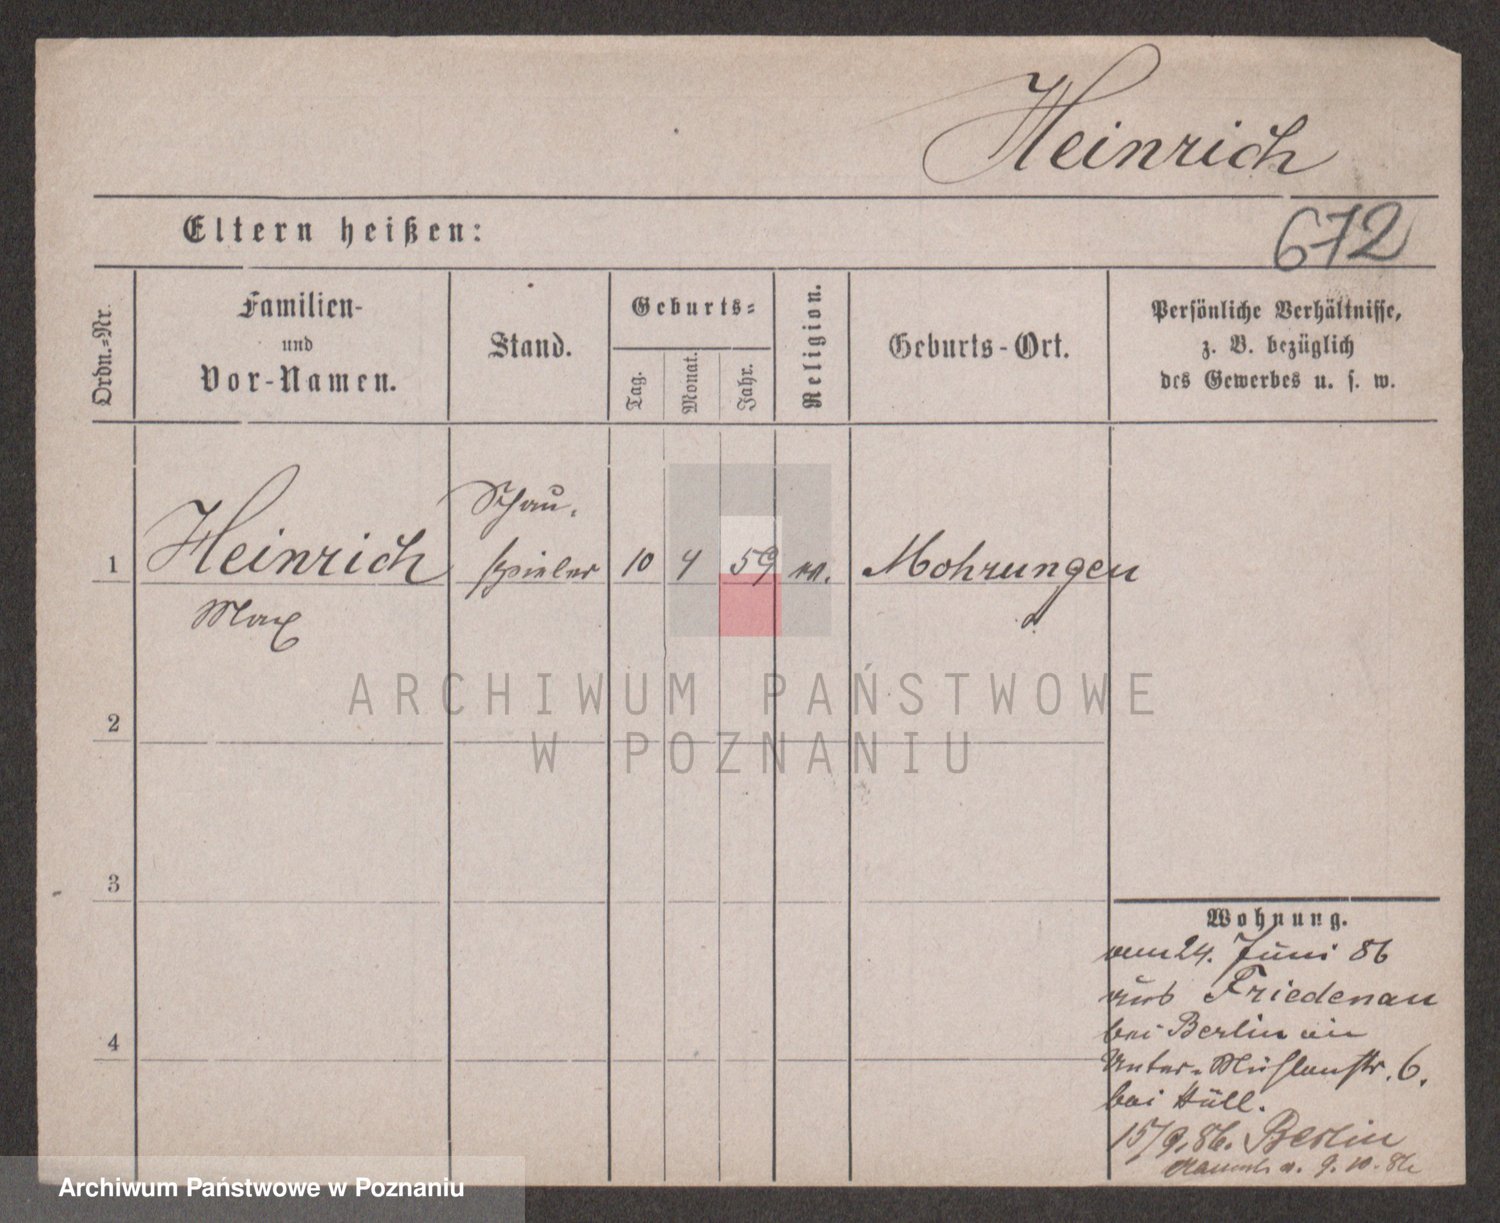 Heinrich
Eltern heißen:
672
Ordn.-Nr.
Familien-
und
Vor-Namen.
Stand.
Geburts-
Tag.
Monat.
Jahr.
Religion.
Geburts-Ort.
Persönliche Verhältnisse,
z. B. bezüglich
des Gewerbes u. s. w.
1
Heinrich
Max
Schau-
spieler
10
4
59
ev.
Mohrungen
2
3
4
Wohnung.
24. Juni 86
aus Friedenau
bei Berlin
Unter-Mühlenstr. 6.
bei Hüll.
15/9.86. Berlin
9. 10. 86
ARCHIWUM PAŃSTWOWE
W POZNANIU
Archiwum Państwowe w Poznaniu